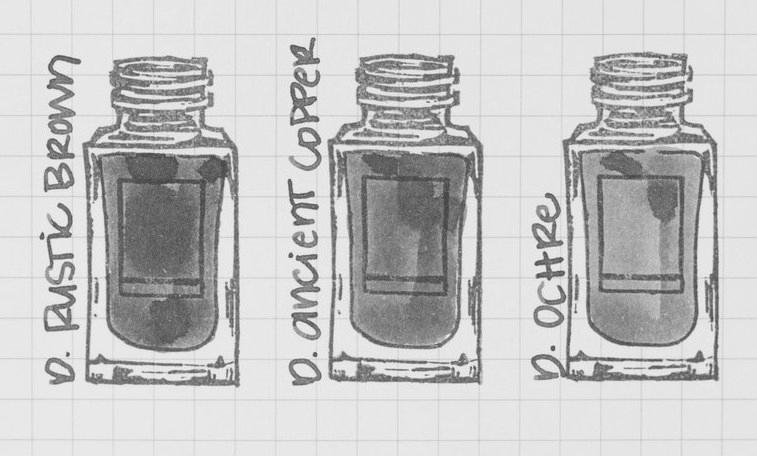 D. RUSTIC BROWN
D. ANCIENT COPPER
D. OCHRE